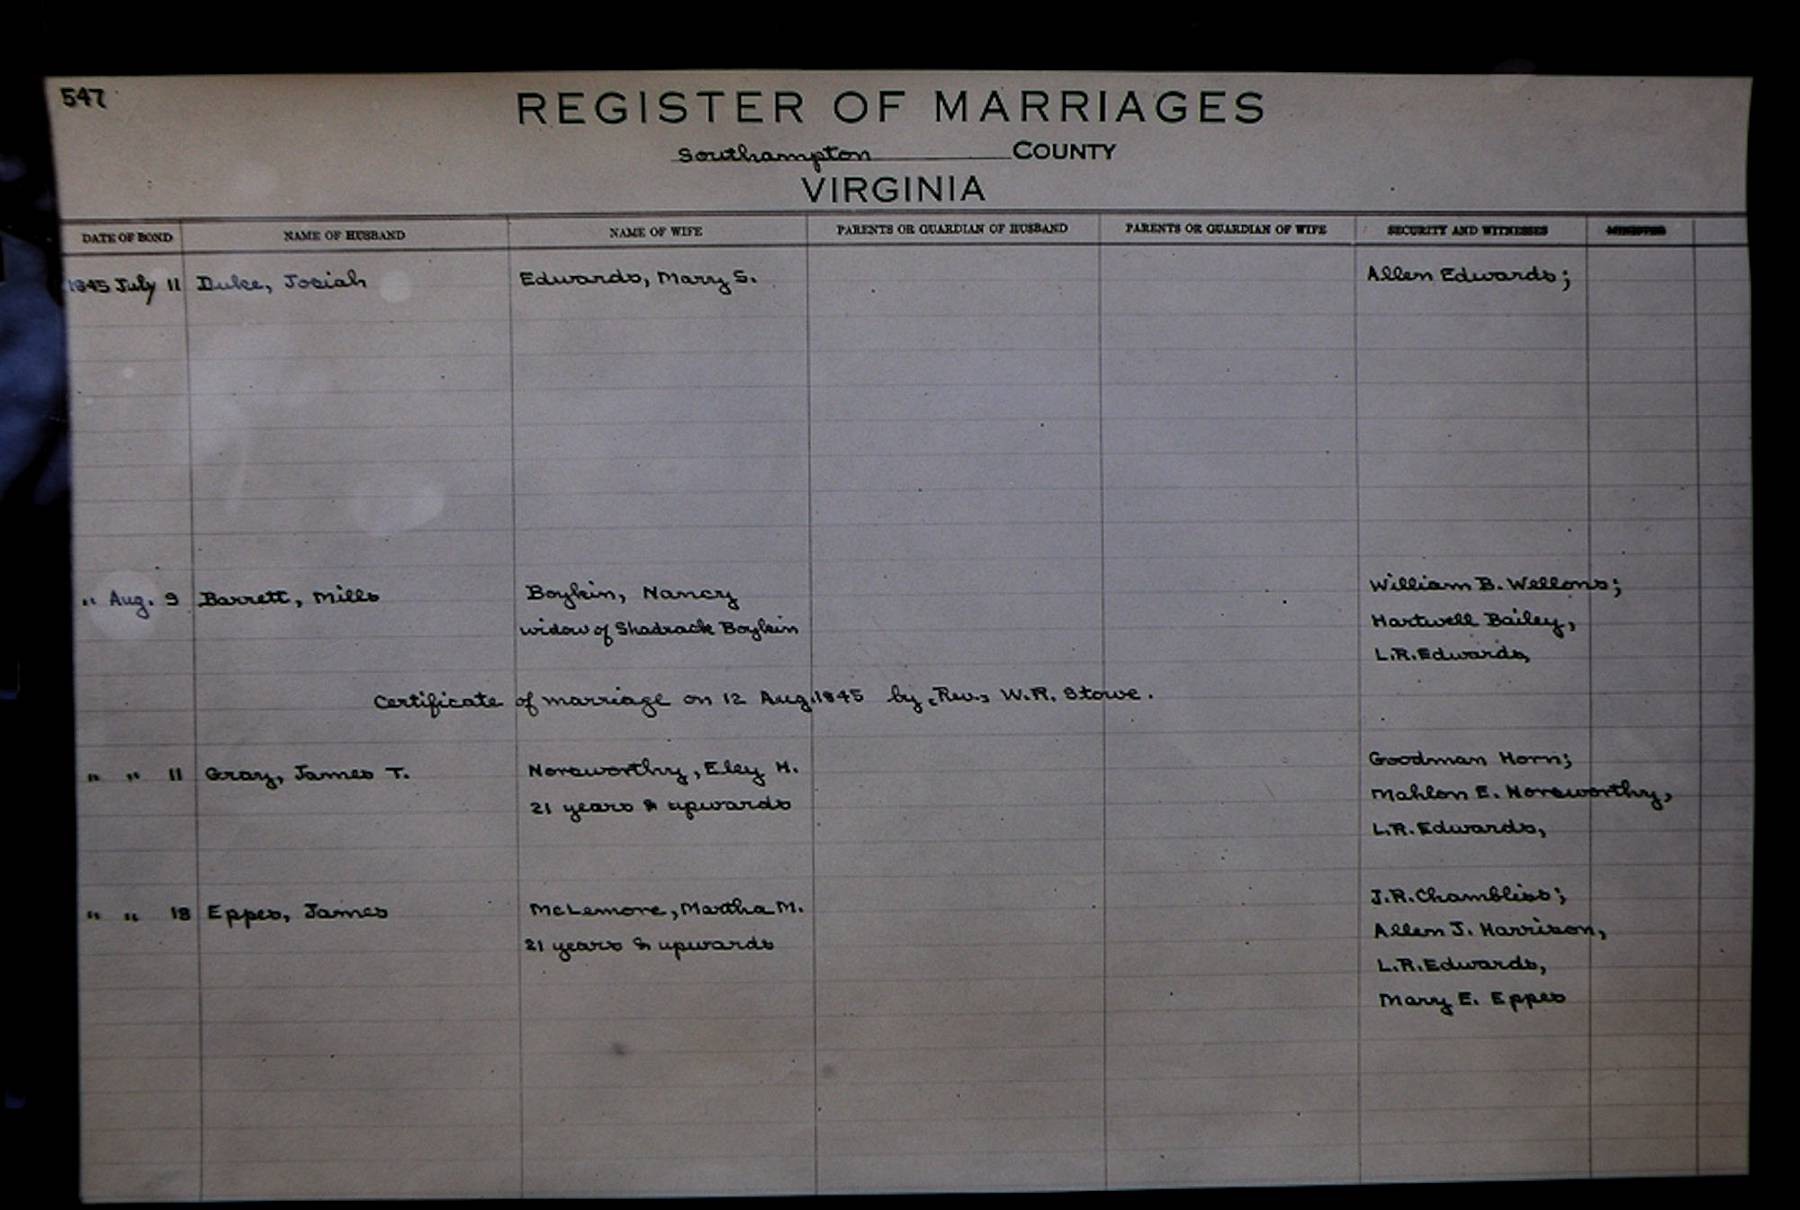 547
REGISTER OF MARRIAGES
Southampton COUNTY
VIRGINIA
DATE OF BOND NAME OF HUSBAND NAME OF WIFE PARENTS OR GUARDIAN OF HUSBAND PARENTS OR GUARDIAN OF WIFE SECURITY AND WITNESSES MINISTER
1845 July 11 Duke, Josiah Edwards, Mary S. Allen Edwards;
" Aug. 9 Barrett, Mills Boykin, Nancy William B. Wellons;
widow of Shadrack Boykin Hartwell Bailey,
L.R. Edwards,
Certificate of marriage on 12 Aug. 1845 by, Rev., W.R. Stowe.
" " 11 Gray, James T. Norsworthy, Eley H. Goodman Horn;
21 years & upwards Mahlon E. Norsworthy,
L.R. Edwards,
" " 18 Eppes, James McLemore, Martha M. J.R. Chambliss;
21 years & upwards Allen J. Harrison,
L.R. Edwards,
Mary E. Eppes